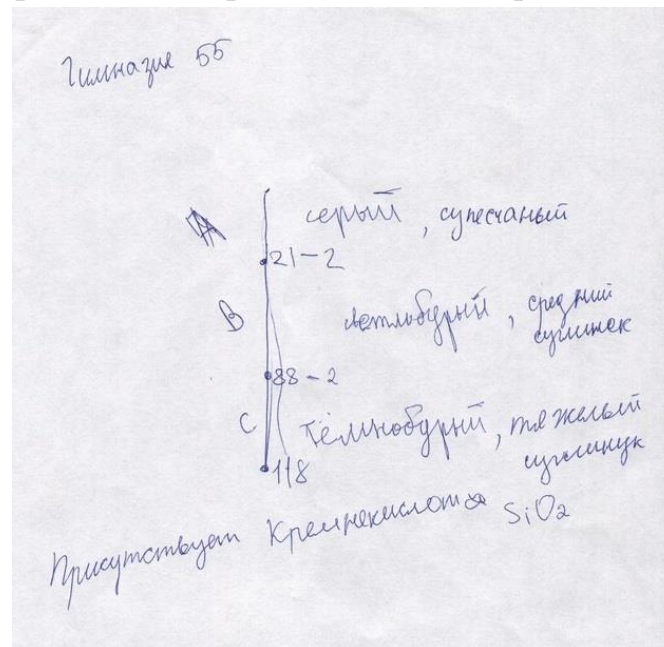 Гимназия 55
А серый, супесчаный
21-2
В светлобурый, средний
суглинек
88-2
С Тёмнобурый, тяжелый
суглинук
118
Присутствует Кремнекислота SiO2